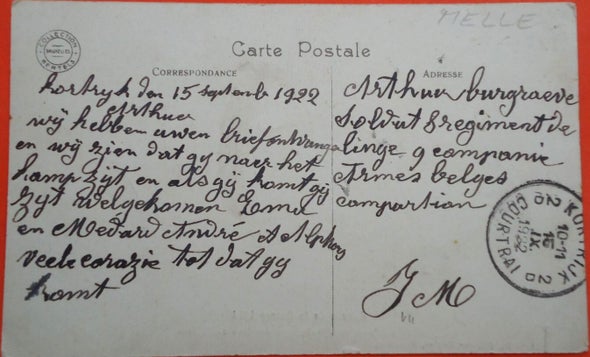 MELLE
COLLECTION
BERTELS
Carte Postale
CORRESPONDANCE
ADRESSE
kortryk den 15 septemb 1922
Arthur
wÿ hebben uwen brief ontvanga
en wÿ zien dat gy naer het
kamp zyt en als gÿ komt gy
zyt welgekomen Ema
en Medard André A Alphons
veele corazie tot dat gy
komt
Arthur burgraeve
soldat 8 regiment de
linge 9 companie
Armes belges
compartion
J M
KORTRIJK 2D
10-11
15
IX
1922
2D COURTRAI